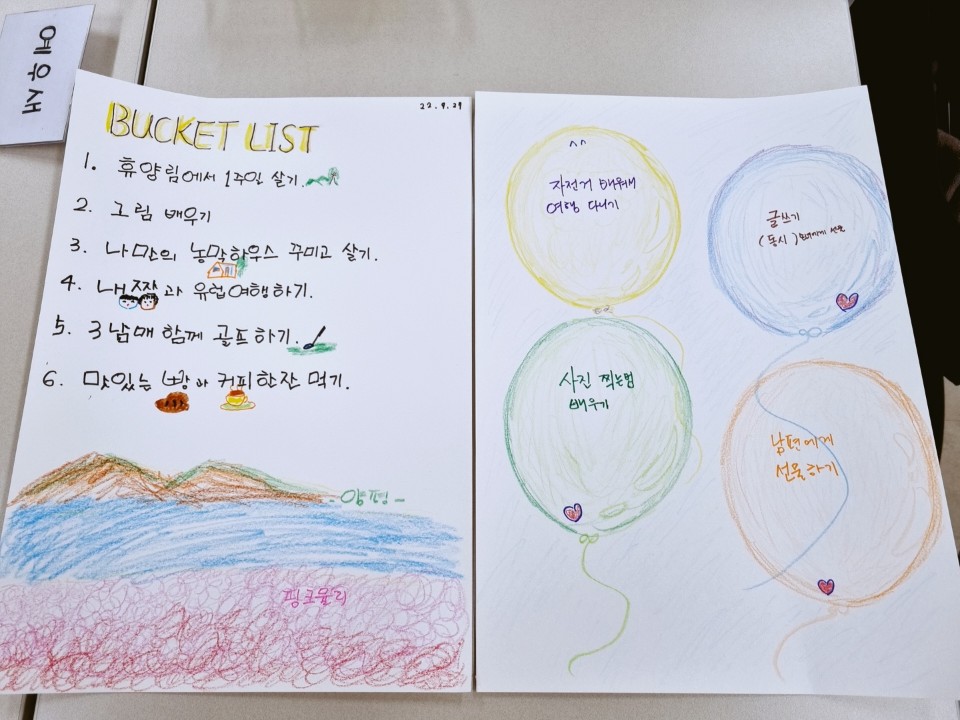 예우새
22.9.29
BUCKET LIST
1. 휴양림에서 1주일 살기.
2. 그림 배우기
3. 나만의 농막하우스 꾸미고 살기.
4. 내짝과 유럽여행하기.
5. 3남매 함께 골프하기.
6. 맛있는 빵과 커피한잔 먹기.
-양평-
핑크뮬리
^^
자전거 배워서
여행 다니기
글쓰기
(동시) 선물
사진 찍는법
배우기
남편에게
선물하기